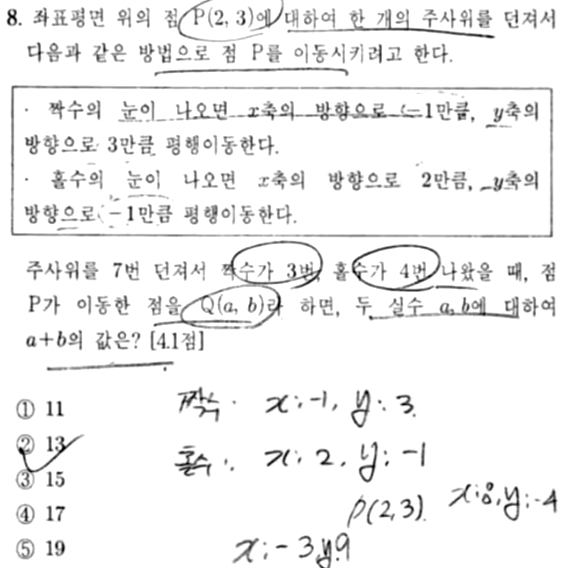 8. 좌표평면 위의 점 P(2, 3)에 대하여 한 개의 주사위를 던져서
다음과 같은 방법으로 점 P를 이동시키려고 한다.
· 짝수의 눈이 나오면 x축의 방향으로 -1만큼, y축의
방향으로 3만큼 평행이동한다.
· 홀수의 눈이 나오면 x축의 방향으로 2만큼, y축의
방향으로 -1만큼 평행이동한다.
주사위를 7번 던져서 짝수가 3번, 홀수가 4번 나왔을 때, 점
P가 이동한 점을 Q(a, b)라 하면, 두 실수 a, b에 대하여
a+b의 값은? [4.1점]
① 11
② 13
③ 15
④ 17
⑤ 19
짝수. x:-1, y:3.
홀수: x:2. y:-1
P(2,3). x:8, y:-4
x:-3 y:9